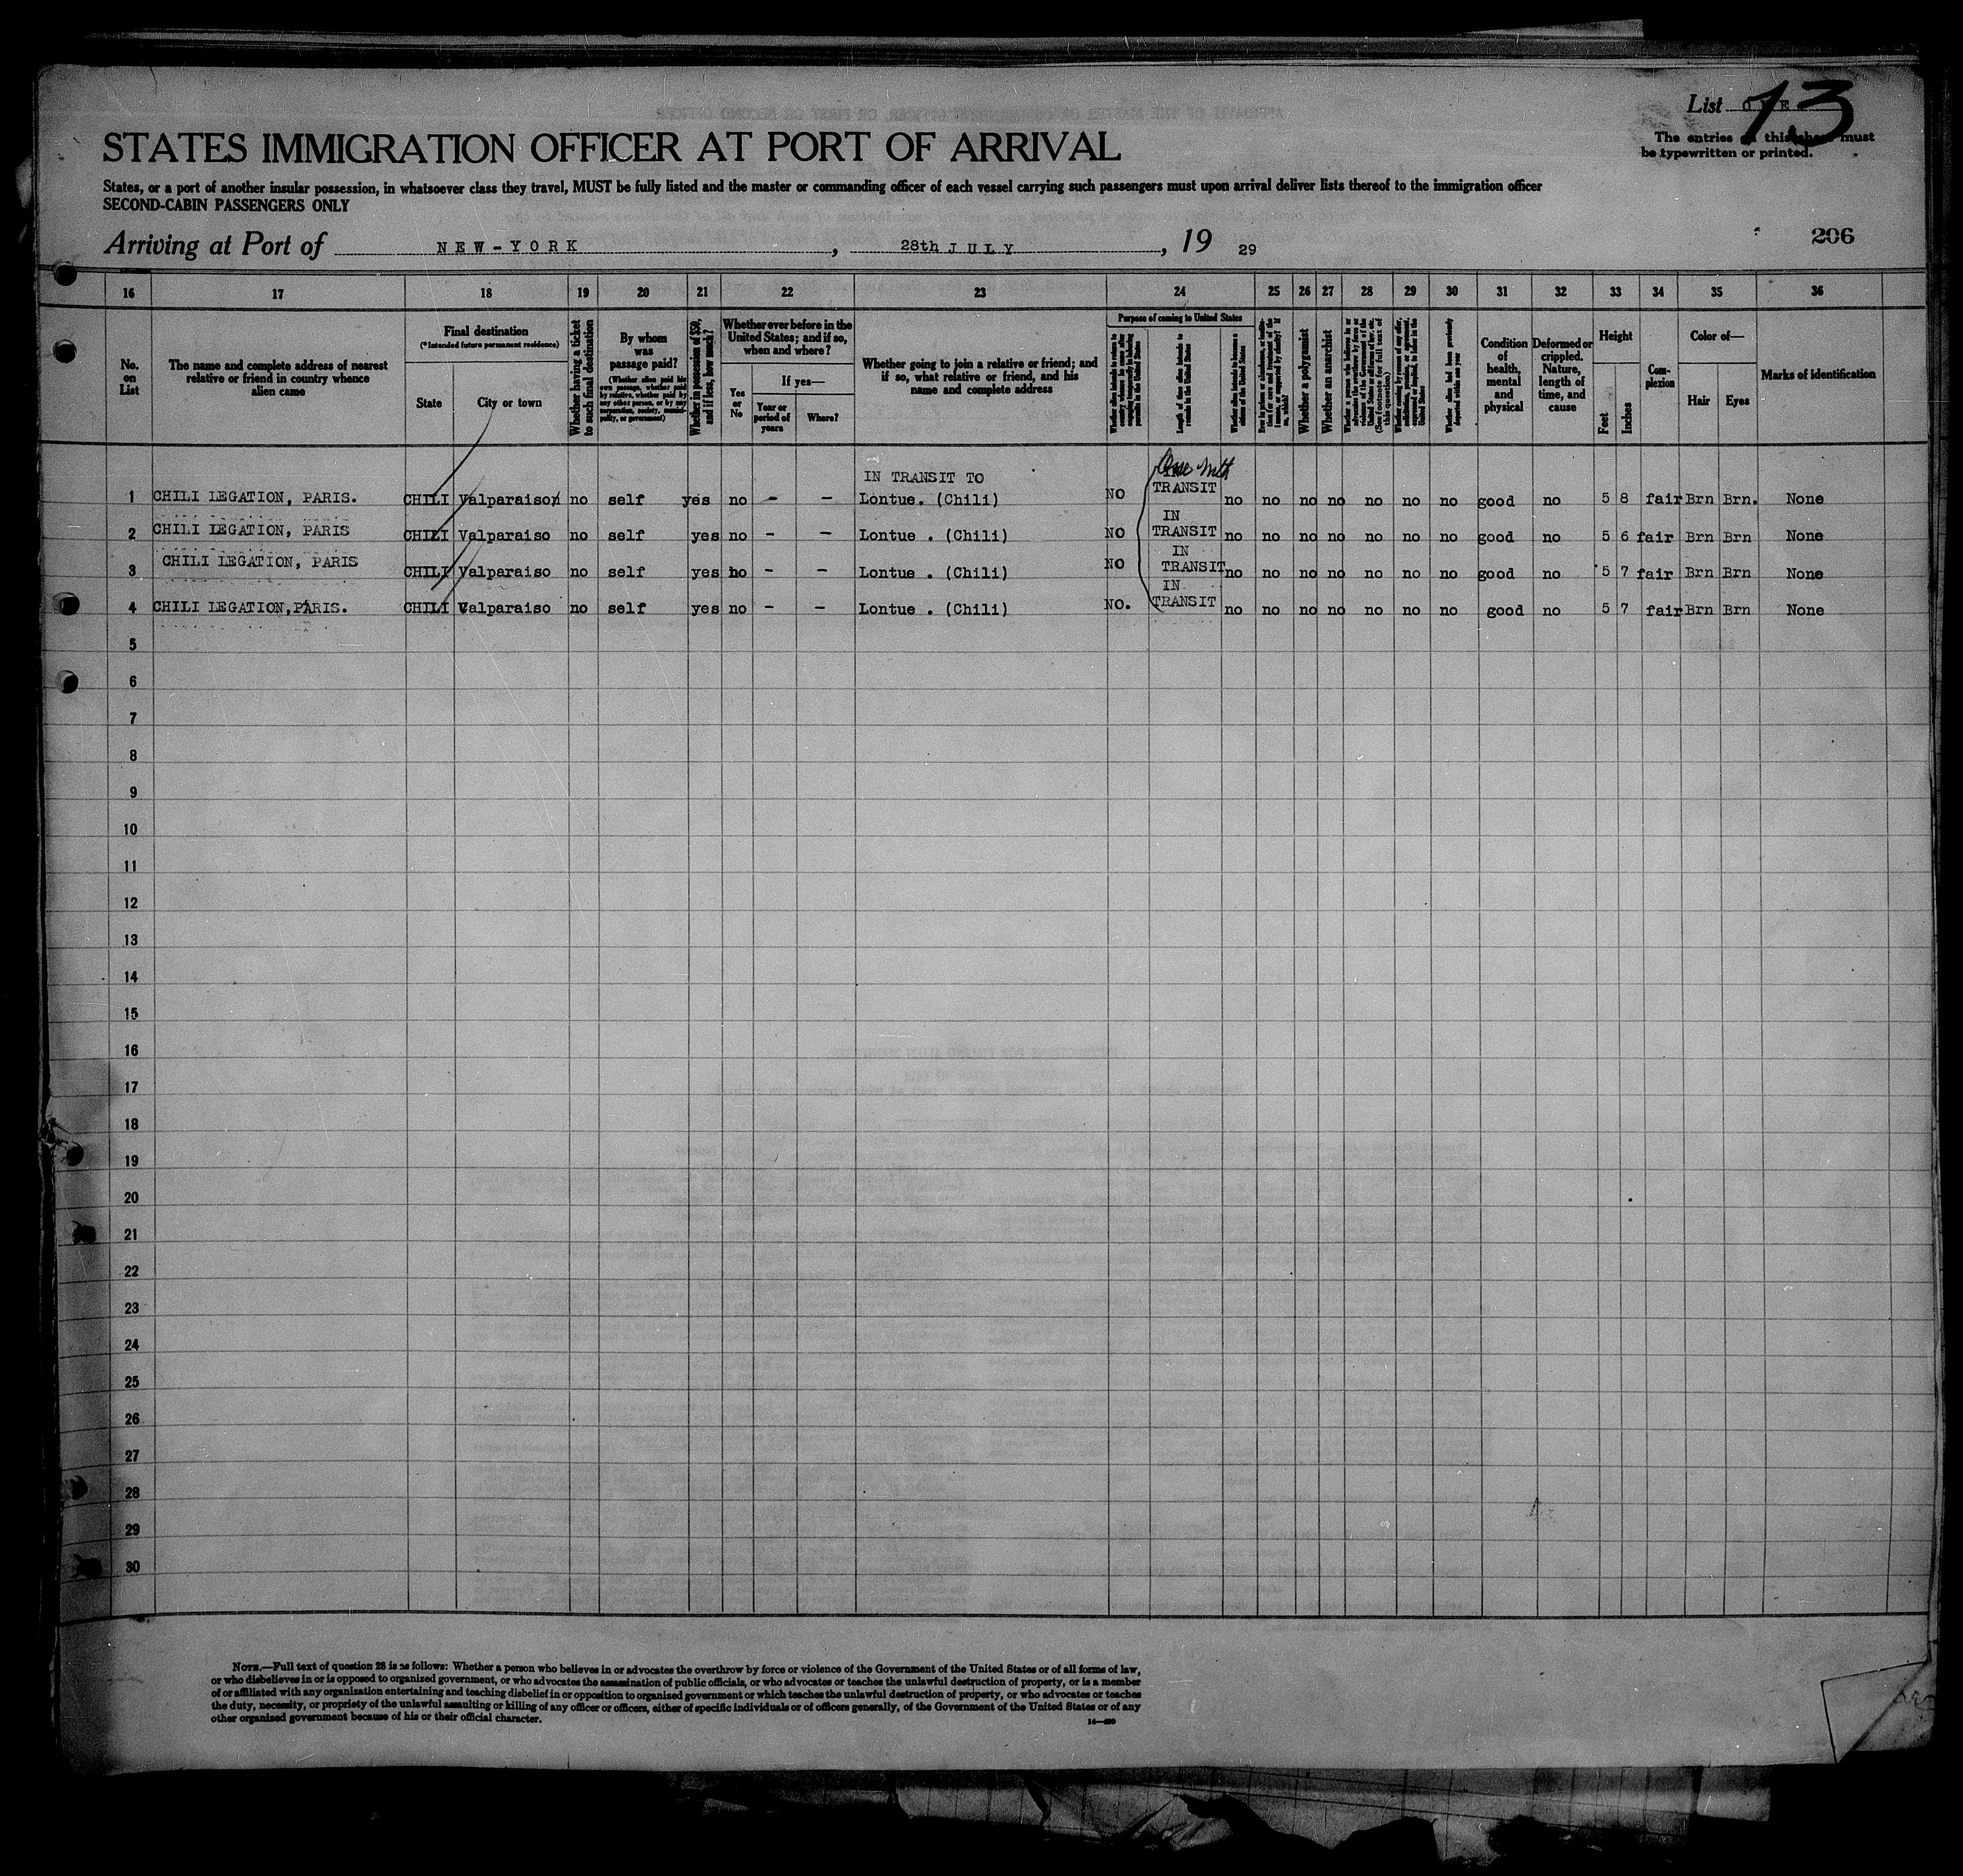 List ONE 13
The entries on this sheet must
be typewritten or printed.
STATES IMMIGRATION OFFICER AT PORT OF ARRIVAL
States, or a port of another insular possession, in whatsoever class they travel, MUST be fully listed and the master or commanding officer of each vessel carrying such passengers must upon arrival deliver lists thereof to the immigration officer
SECOND-CABIN PASSENGERS ONLY
Arriving at Port of NEW-YORK, 28th JULY, 19 29
206
16 17 18 19 20 21 22 23 24 25 26 27 28 29 30 31 32 33 34 35 36
No. on List
The name and complete address of nearest relative or friend in country whence alien came
Final destination
(*Intended future permanent residence)
State
City or town
Whether having a ticket to such final destination
By whom was passage paid?
(Whether alien paid his own passage, whether paid by relative, whether paid by any other person, or by any corporation, society, municipality, or government)
Whether in possession of $50, and if less, how much?
Whether ever before in the United States; and if so, when and where?
Yes or No
If yes—
Year or period of years
Where?
Whether going to join a relative or friend; and if so, what relative or friend, and his name and complete address
Purpose of coming to United States
Length of time alien intends to remain in the United States
Whether alien intends to become a citizen of the United States
Whether a polygamist
Whether an anarchist
(See footnote for full text of this question)
Whether alien had been previously deported within one year
Condition of health, mental and physical
Deformed or crippled. Nature, length of time, and cause
Height
Feet
Inches
Complexion
Color of—
Hair
Eyes
Marks of identification
IN TRANSIT TO
One mth
1 CHILI LEGATION, PARIS. CHILI Valparaiso no self yes no - - Lontue. (Chili) NO TRANSIT no no no no no no no good no 5 8 fair Brn Brn. None
IN
2 CHILI LEGATION, PARIS CHILI Valparaiso no self yes no - - Lontue . (Chili) NO TRANSIT no no no no no no no good no 5 6 fair Brn Brn None
IN
3 CHILI LEGATION, PARIS CHILI Valparaiso no self yes no - - Lontue . (Chili) NO TRANSIT no no no no no no no good no 5 7 fair Brn Brn None
IN
4 CHILI LEGATION, PARIS. CHILI Valparaiso no self yes no - - Lontue . (Chili) NO. TRANSIT no no no no no no no good no 5 7 fair Brn Brn None
5
6
7
8
9
10
11
12
13
14
15
16
17
18
19
20
21
22
23
24
25
26
27
28
29
30
NOTE.—Full text of question 28 is as follows: Whether a person who believes in or advocates the overthrow by force or violence of the Government of the United States or of all forms of law,
or who disbelieves in or is opposed to organized government, or who advocates the assassination of public officials, or who advocates or teaches the unlawful destruction of property, or is a member
of or affiliated with any organization entertaining and teaching disbelief in or opposition to organized government or which teaches the unlawful destruction of property, or who advocates or teaches
the duty, necessity, or propriety of the unlawful assaulting or killing of any officer or officers, either of specific individuals or of officers generally, of the Government of the United States or of any
other organized government because of his or their official character.